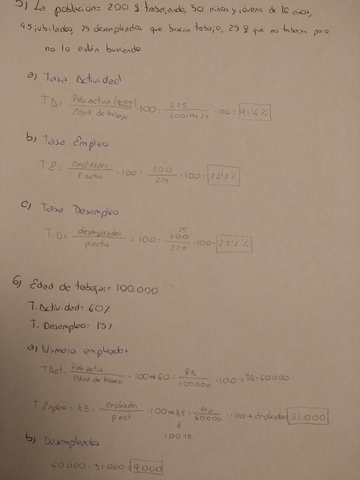 5) La población= 200 trabajando, 50 niños y jóvenes de 10 años,
45 jubilados, 25 desempleados que buscan trabajo, 25 que no trabajan pero
no lo están buscando
a) Tasa Actividad
TA= Pob activa / Edad de trabajo · 100 = 225 / · 100 =
b) Tasa Empleo
T E = empleados / P. activa · 100 = 200 / · 100 =
c) Tasa Desempleo
T D= desempleados / p activa · 100 = 25 / 225 · 100 =
6) Edad de trabajar= 100.000
T. Actividad= 60%
T. Desempleo: 15%
a) Número empleados
T Act= Pob activa / Edad de trabajo · 100 → 60 = / 100.000 · 100 → = 60.000
T Empleo = 85 = empleados / p act · 100 → 85 = emp / 60.000 · 100 → Empleados 51.000
100-15
b) Desempleados
60.000 - 51.000 = 9.000